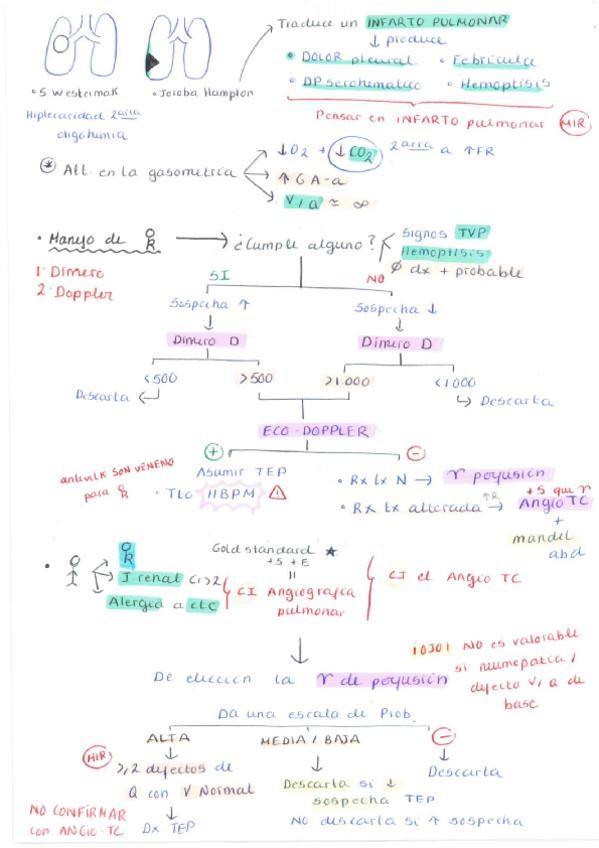 Traduce un INFARTO PULMONAR
↓ produce
• DOLOR pleural • Febrícula
• DP serohemático • Hemoptisis
Pensar en INFARTO pulmonar MIR
• S Westermak
Hiplecaridad 2aria
oligohemia
• Joroba Hampton
* Alt. en la gasometría
↓O2 + ↓CO2 2aria a ↑FR
↑GA-a
V/Q ≃ ∞
• Manejo de → ¿Cumple alguno?
Signos TVP
Hemoptisis
Ø dx + probable
1º Dímero
2º Doppler
SI NO
Sospecha ↑ Sospecha ↓
Dímero D Dímero D
<500 >500 >1000 <1000
Descarta Descarta
ECO-DOPPLER
+ -
Asumir TEP
antivitK SON VENENO
para
• Tto HBPM
• Rx tx N → γ perfusión
• Rx tx alterada → ↑R Angio TC
+S que γ
+
mandil
abd
I. renal Cr>2
Alergia a CIC
Gold standard ★
+S + E
=
CI Angiografía
pulmonar
CI el Angio TC
↓
De elección la γ de perfusión
¡OJO! NO es valorable
si neumopatía /
defecto V/Q de
base
Da una escala de Prob.
ALTA MEDIA / BAJA -
MIR
≥2 defectos de
Q con V Normal
Dx TEP
NO CONFIRMAR
con ANGIO-TC
Descarta si ↓
sospecha TEP
NO descarta si ↑ sospecha
Descarta